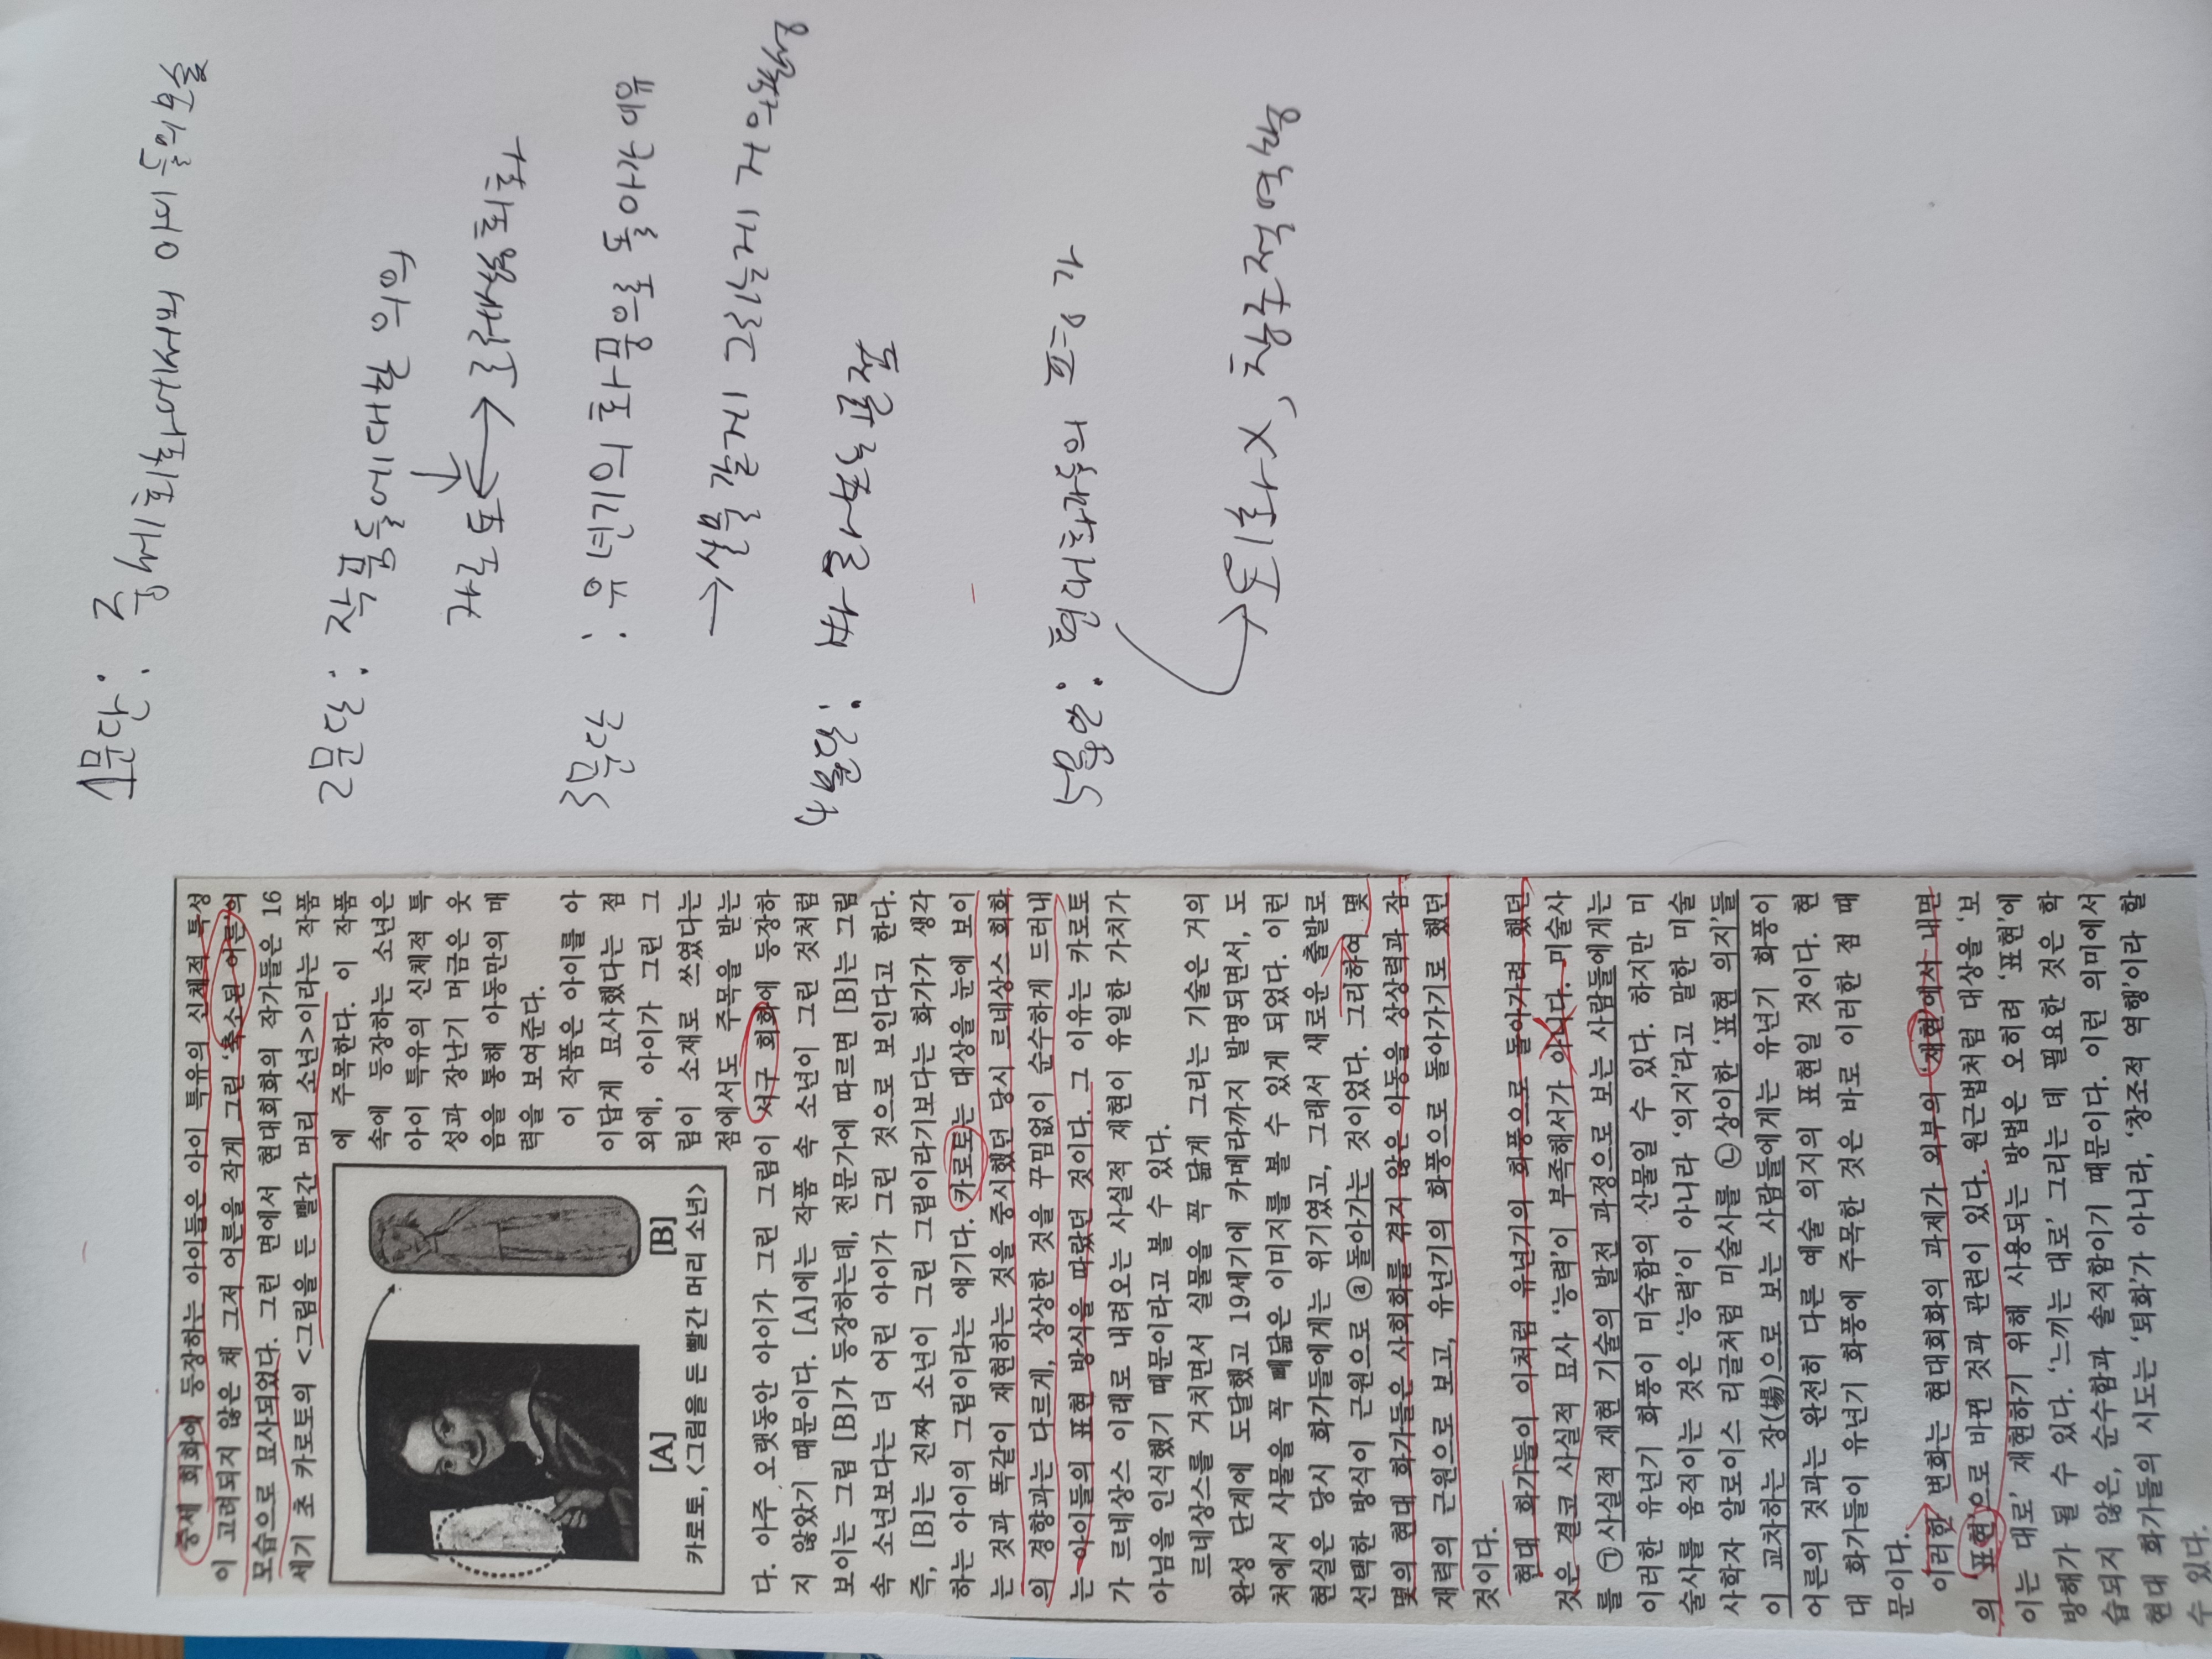 1문단: 중세회화에서의 아이들의모습
2문단: 작품들에대한 의의
카로토 ↔ 르네상스회화
3문단 : 유년기의 화풍으로 돌아간 이유
→ 실물같게 그리는게 거의완성
4문단: 바라보는관점
5문단: 현대화가들의 평가
→ 퇴화X, 창조적역행
중세 회화에 등장하는 아이들은 아이 특유의 신체적 특성
이 고려되지 않은 채 그저 어른을 작게 그린 '축소된 어른'의
모습으로 묘사되었다. 그런 면에서 현대회화의 작가들은 16
세기 초 카로토의 <그림을 든 빨간 머리 소년>이라는 작품
에 주목한다. 이 작품
속에 등장하는 소년은
아이 특유의 신체적 특
성과 장난기 머금은 웃
음을 통해 아동만의 매
력을 보여준다.
이 작품은 아이를 아
이답게 묘사했다는 점
외에, 아이가 그린 그
림이 소재로 쓰였다는
점에서도 주목을 받는
[A]
[B]
카로토, <그림을 든 빨간 머리 소년>
다. 아주 오랫동안 아이가 그린 그림이 서구 회화에 등장하
지 않았기 때문이다. [A]에는 작품 속 소년이 그린 것처럼
보이는 그림 [B]가 등장하는데, 전문가에 따르면 [B]는 그림
속 소년보다는 더 어린 아이가 그린 것으로 보인다고 한다.
즉, [B]는 진짜 소년이 그린 그림이라기보다는 화가가 생각
하는 아이의 그림이라는 얘기다. 카로토는 대상을 눈에 보이
는 것과 똑같이 재현하는 것을 중시했던 당시 르네상스 회화
의 경향과는 다르게, 상상한 것을 꾸밈없이 순수하게 드러내
는 아이들의 표현 방식을 따랐던 것이다. 그 이유는 카로토
가 르네상스 이래로 내려오는 사실적 재현이 유일한 가치가
아님을 인식했기 때문이라고 볼 수 있다.
르네상스를 거치면서 실물을 꼭 닮게 그리는 기술은 거의
완성 단계에 도달했고 19세기에 카메라까지 발명되면서, 도
처에서 사물을 꼭 빼닮은 이미지를 볼 수 있게 되었다. 이런
현실은 당시 화가들에게는 위기였고, 그래서 새로운 출발로
선택한 방식이 근원으로 ⓐ돌아가는 것이었다. 그리하여 몇
몇의 현대 화가들은 사회화를 겪지 않은 아동을 상상력과 잠
재력의 근원으로 보고, 유년기의 화풍으로 돌아가기로 했던
것이다.
현대 화가들이 이처럼 유년기의 화풍으로 돌아가려 했던
것은 결코 사실적 묘사 '능력'이 부족해서가 아니다. 미술사
를 ㉠사실적 재현 기술의 발전 과정으로 보는 사람들에게는
이러한 유년기 화풍이 미숙함의 산물일 수 있다. 하지만 미
술사를 움직이는 것은 '능력'이 아니라 '의지'라고 말한 미술
사학자 알로이스 리글처럼 미술사를 ㉡상이한 '표현 의지'들
이 교차하는 장(場)으로 보는 사람들에게는 유년기 화풍이
어른의 것과는 완전히 다른 예술 의지의 표현일 것이다. 현
대 화가들이 유년기 화풍에 주목한 것은 바로 이러한 점 때
문이다.
이러한 변화는 현대회화의 과제가 외부의 '재현'에서 내면
의 '표현'으로 바뀐 것과 관련이 있다. 원근법처럼 대상을 '보
이는 대로' 재현하기 위해 사용되는 방법은 오히려 '표현'에
방해가 될 수 있다. '느끼는 대로' 그리는 데 필요한 것은 학
습되지 않은, 순수함과 솔직함이기 때문이다. 이런 의미에서
현대 화가들의 시도는 '퇴화'가 아니라, '창조적 역행'이라 할
수 있다.